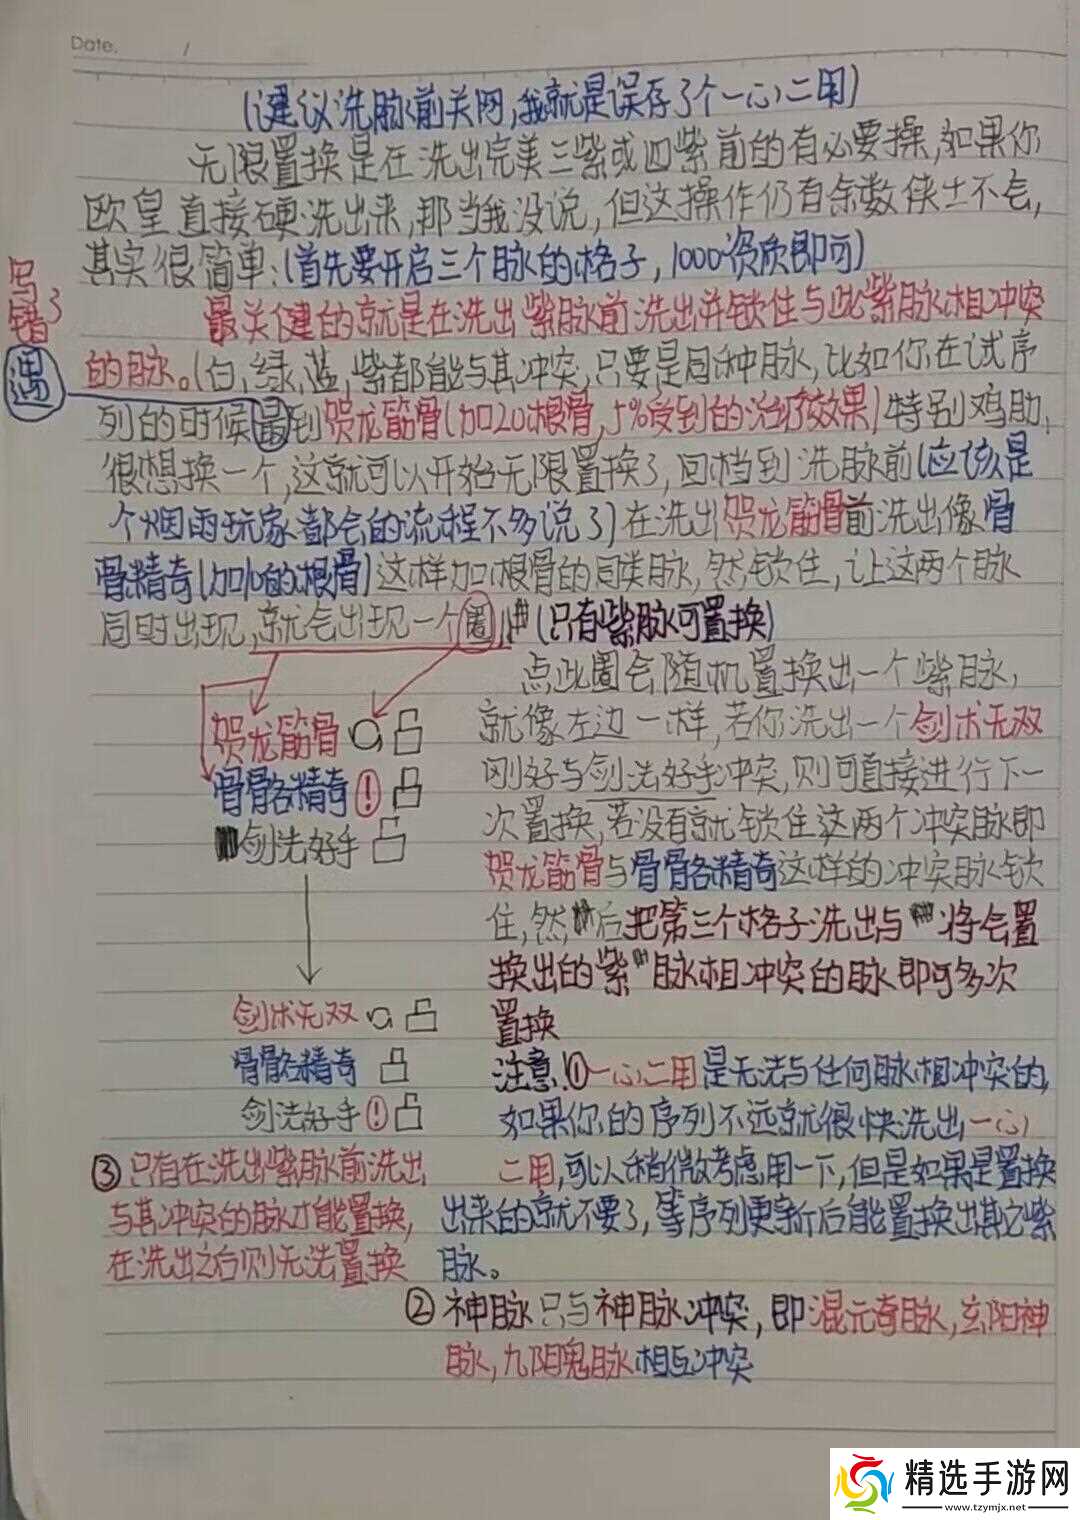 Date. /
(建议洗脉前关网,我就是误存了个一心二用)
无限置换是在洗出完美三紫或四紫前的有必要操,如果你
欧皇直接硬洗出来,那当我没说,但这操作仍有余数侠士不会,
其实很简单:(首先要开启三个脉的格子,1000资质即可)
写错了
遇
最关健的就是在洗出紫脉前洗出并锁住与此紫脉相冲突
的脉。(白,绿,蓝,紫都能与其冲突,只要是同种脉,比如你在试序
列的时候到贺龙筋骨(加20根骨,5%受到的治疗效果)特别鸡肋,
很想换一个,这就可以开始无限置换了,回档到洗脉前(应该是
个烟雨玩家都会的流程不多说了)在洗出贺龙筋骨前洗出像骨
骨精奇(加10的根骨)这样加根骨的同类脉,然锁住,让这两个脉
同时出现,就会出现一个圈(只有紫脉可置换)
点此圈会随机置换出一个紫脉,
就像左边一样,若你洗出一个剑术无双
刚好与剑法好手冲突,则可直接进行下一
次置换,若没有就锁住这两个冲突脉即
贺龙筋骨与骨骼精奇这样的冲突脉锁
住,然后把第三个格子洗出与将会置
换出的紫脉相冲突的脉即可多次
置换
贺龙筋骨
骨骼精奇!
剑法好手
剑术无双
骨骼精奇
剑法好手!
注意!①一心二用是无法与任何脉相冲突的,
如果你的序列不远就很快洗出一心
二用,可以稍微考虑用一下,但是如果是置换
出来的就不要了,等序列更新后能置换出其之紫
脉。
③只有在洗出紫脉前洗出
与其冲突的脉才能置换,
在洗出之后则无法置换
②神脉只与神脉冲突,即混元奇脉,玄阳神
脉,九阴鬼脉相互冲突
精选手游网
www.tzymjx.net